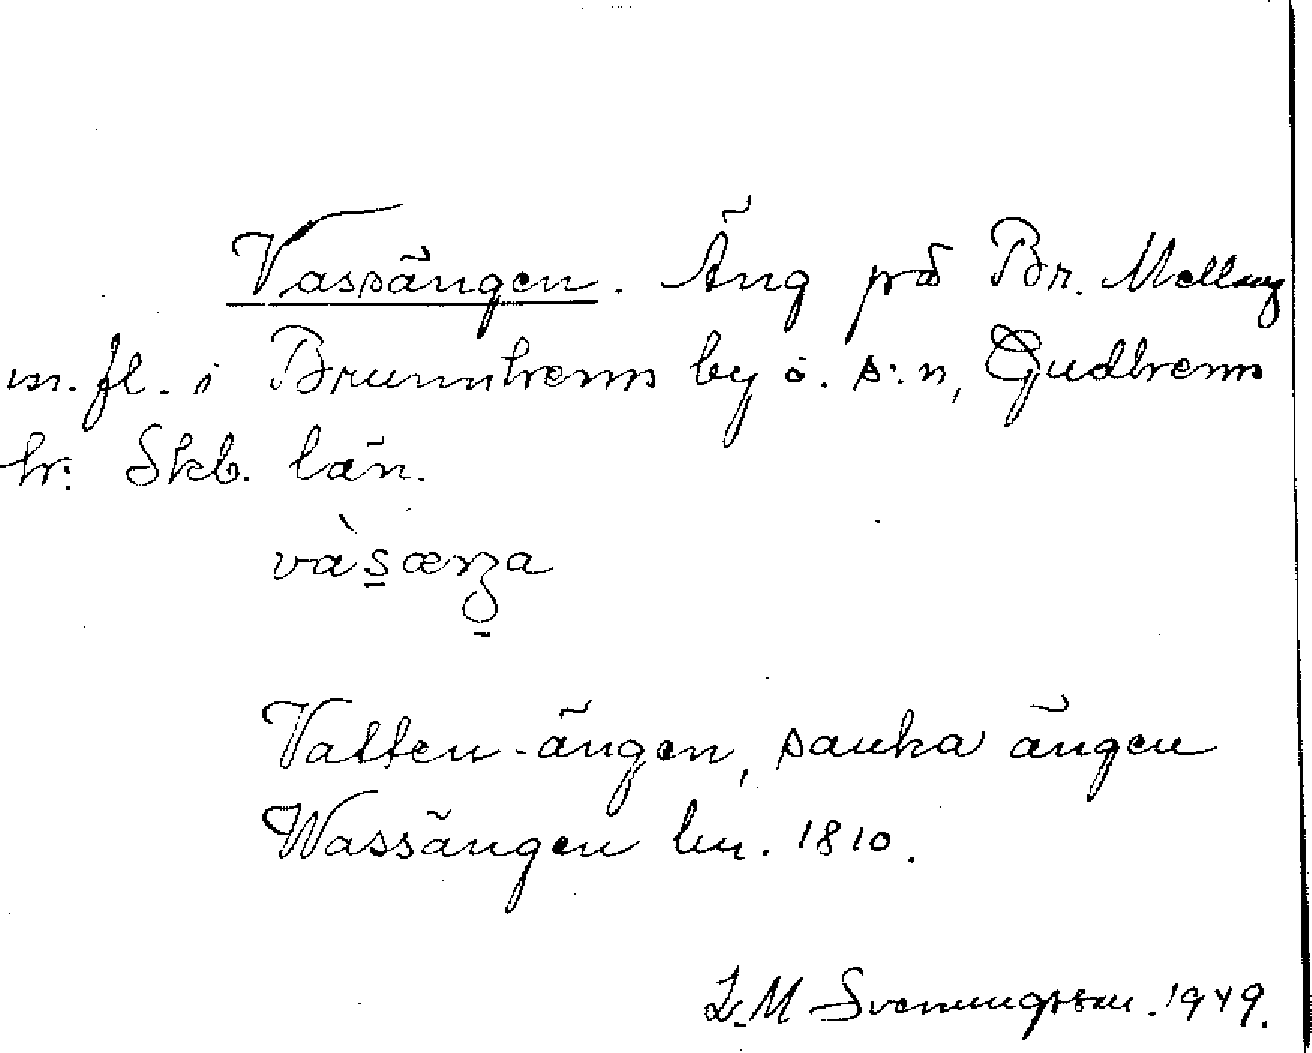 Vassängen. Äng på Br. Mellang
m. fl. i Brunnhems by o. s:n, Gudhems
hr. Skb. län.
vàs̲æŋa
Vatten-ängen, sanka ängen
Wassängen lm. 1810.
L. M Svenungsson. 1949.